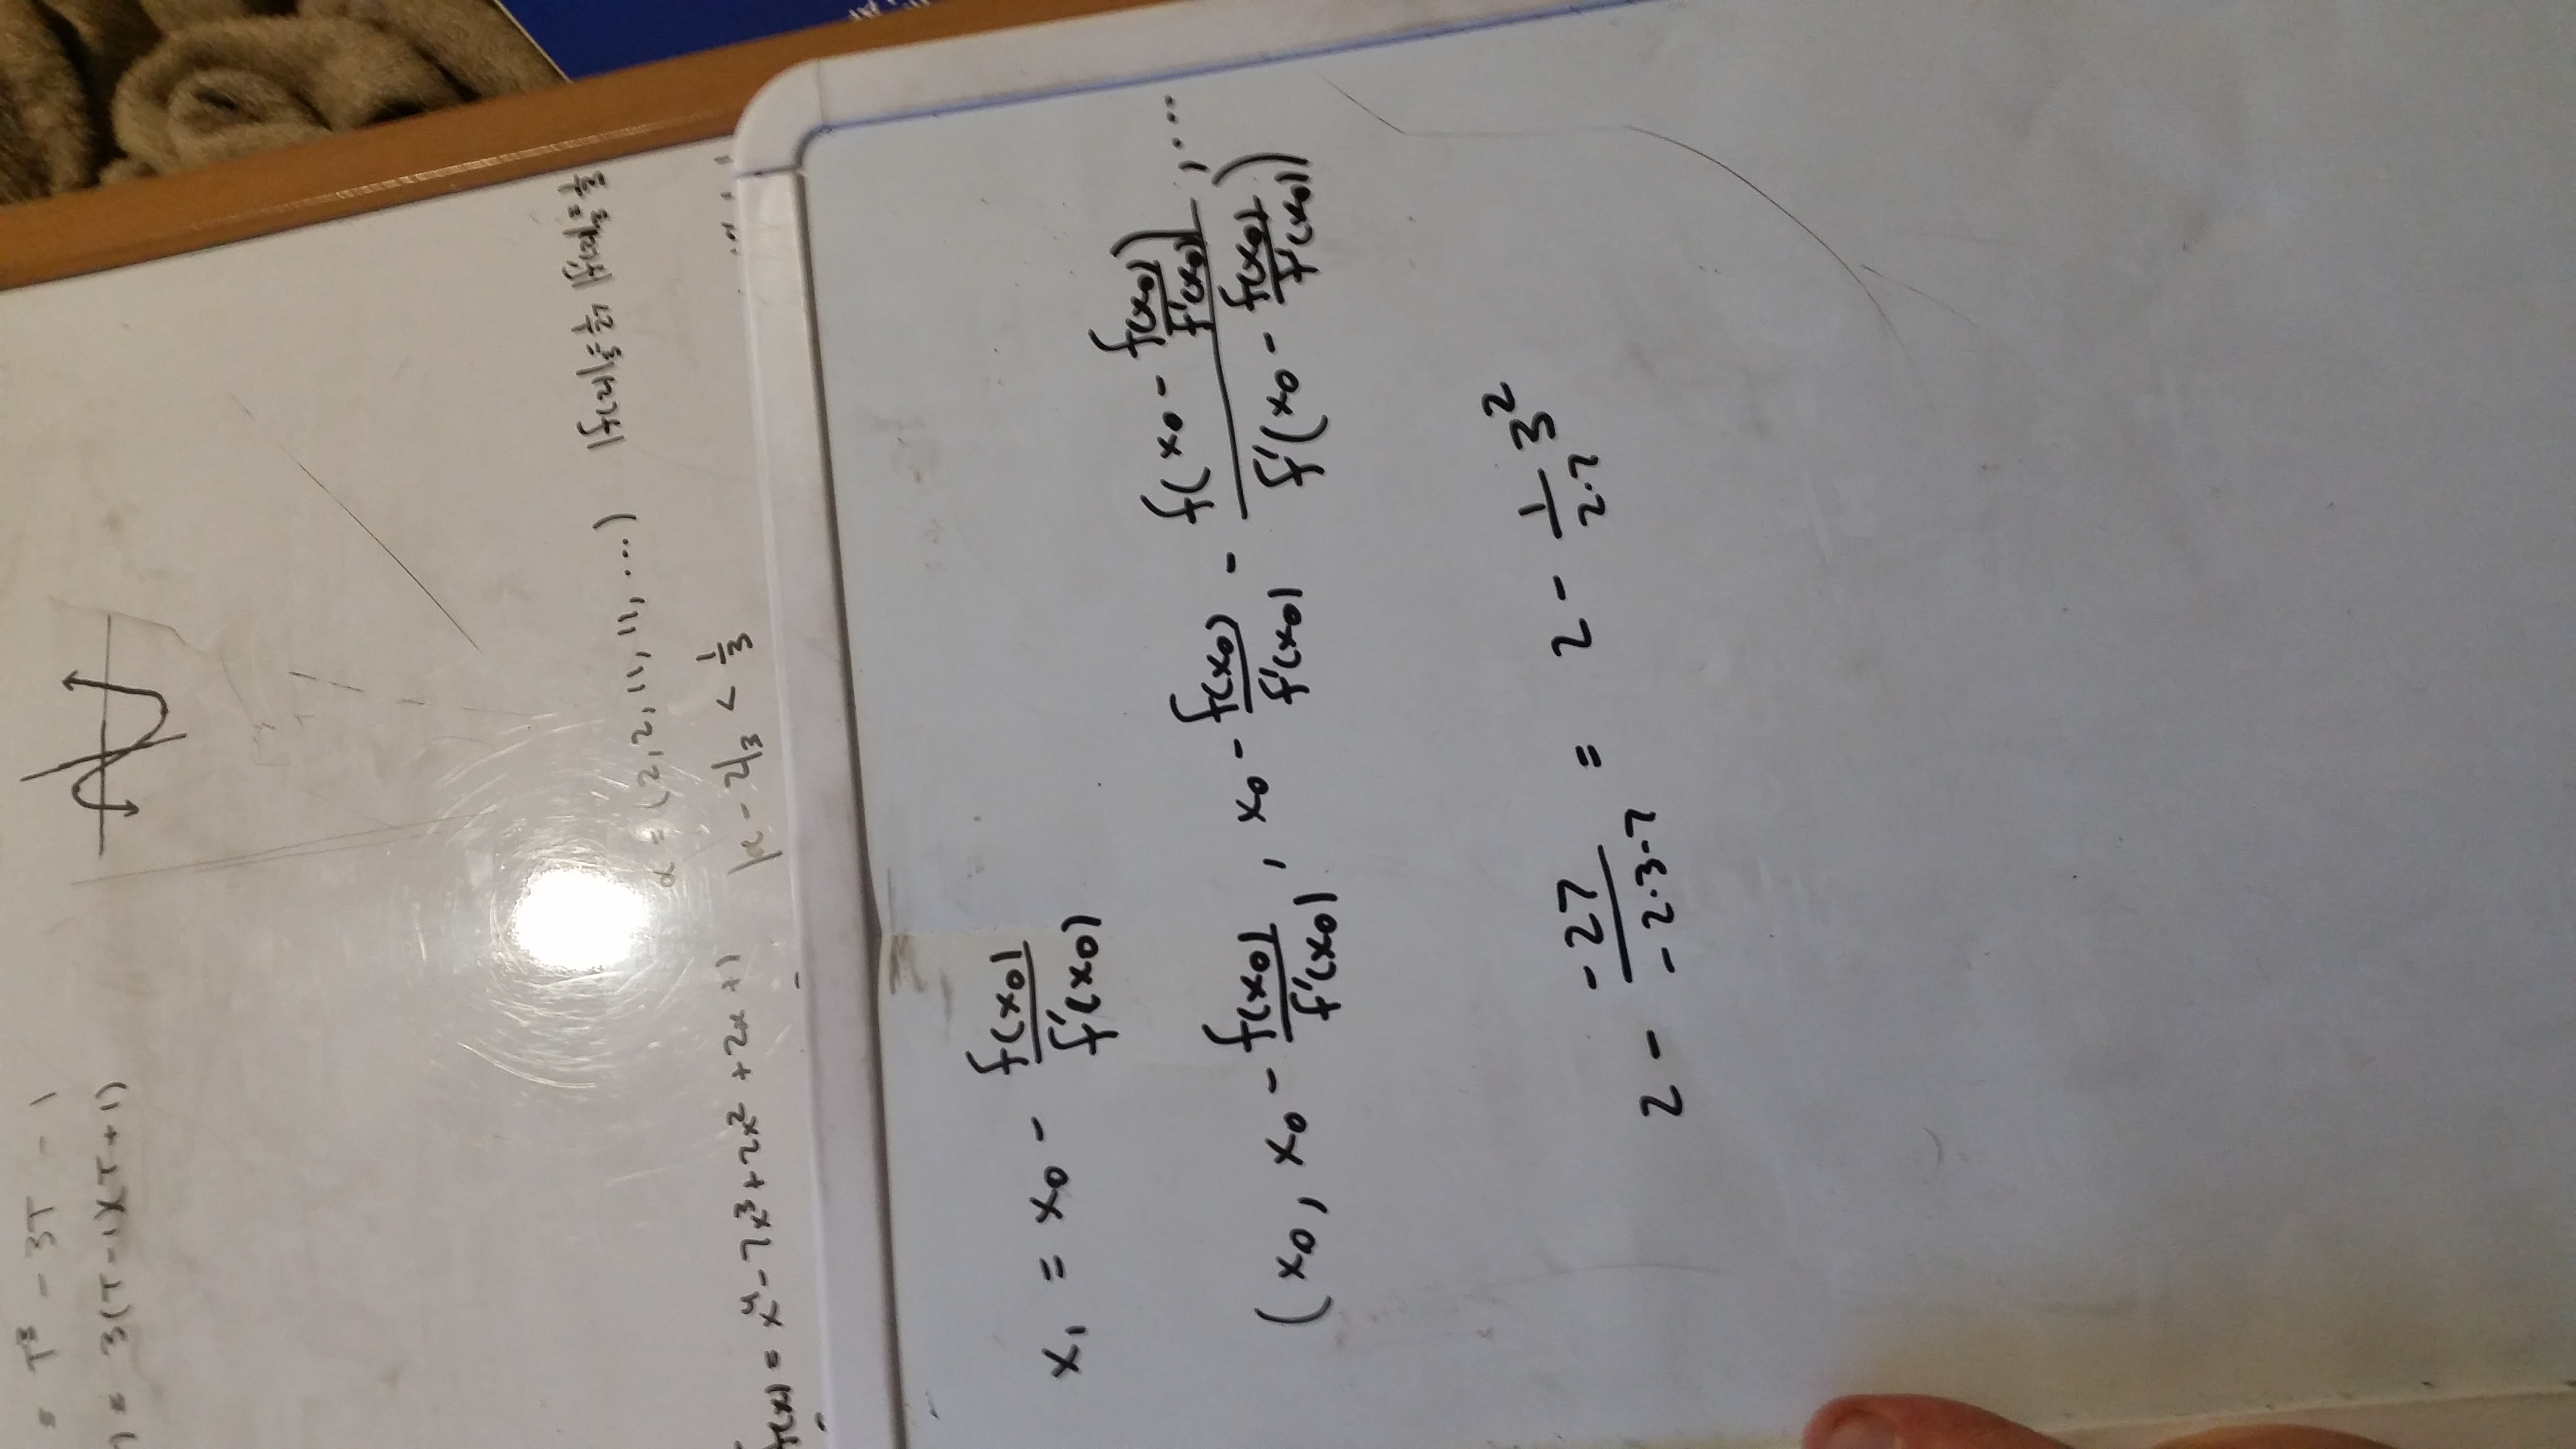 = T³ - 3T - 1
) = 3(T-1)(T+1)
α = (2, 2, 11, 11, ...) |f(2)|₃ = 1/27 |f'(2)|₃ = 1/3
f(x) = x⁴ - 7x³ + 2x² + 2x + 1 |α - 2|₃ < 1/3
x₁ = x₀ - f(x₀)/f'(x₀)
(x₀, x₀ - f(x₀)/f'(x₀), x₀ - f(x₀)/f'(x₀) - f(x₀ - f(x₀)/f'(x₀))/f'(x₀ - f(x₀)/f'(x₀)), ...
2 - -27/-2·3·7 = 2 - 1/2·7 3²